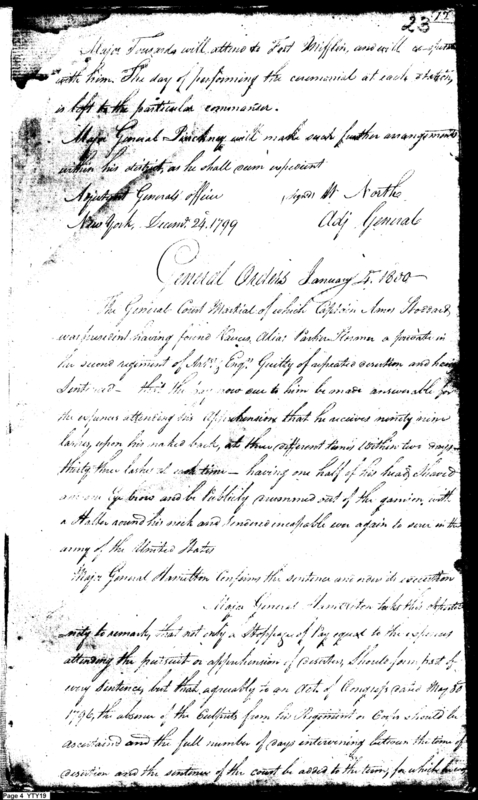 23 17
Major Tousards will attend to Fort Mifflin, and will co-operate
with him. The day of performing the ceremonial at each station,
is left to the particular commander.
Major General Pinckney will make such further arrangements
within his district, as he shall deem expedient
Adjutant General's office (signed) W North
New York, Decemr. 24. 1799 Adj General
General Orders January 4. 1800
The General Court Martial of which Captain Amos Stoddard
was president having found Alias Parker a private in
the second regiment of Art. & Engrs. Guilty of repeated desertion and having
Sentenced that the pay now due to him be made answerable for
the expences attending his apprehension that he receives ninety nine
lashes, upon his naked back, at three different times within two days
thirty three lashes at each time - having one half of his head shaved
and one Eye brow and be Publicly drummed out of the garrison with
a Halter around his neck and rendered incapable ever again to serve in the
army of the United States
Major General Hamilton confirms the sentence and orders its execution
Major General Hamilton takes this opportu
nity to remark, that not only a Stoppage of Pay equal to the expences
attending the pursuit or apprehension of deserters, should form part of
every Sentence, but that agreeably to an Act of Congress dated May 30
1796, the absence of the Culprits from his Regiment or Corps should be
ascertained and the full number of days intervening between the time of
desertion and the sentence of the court be added to the term, for which he was
Page 4 YTY19